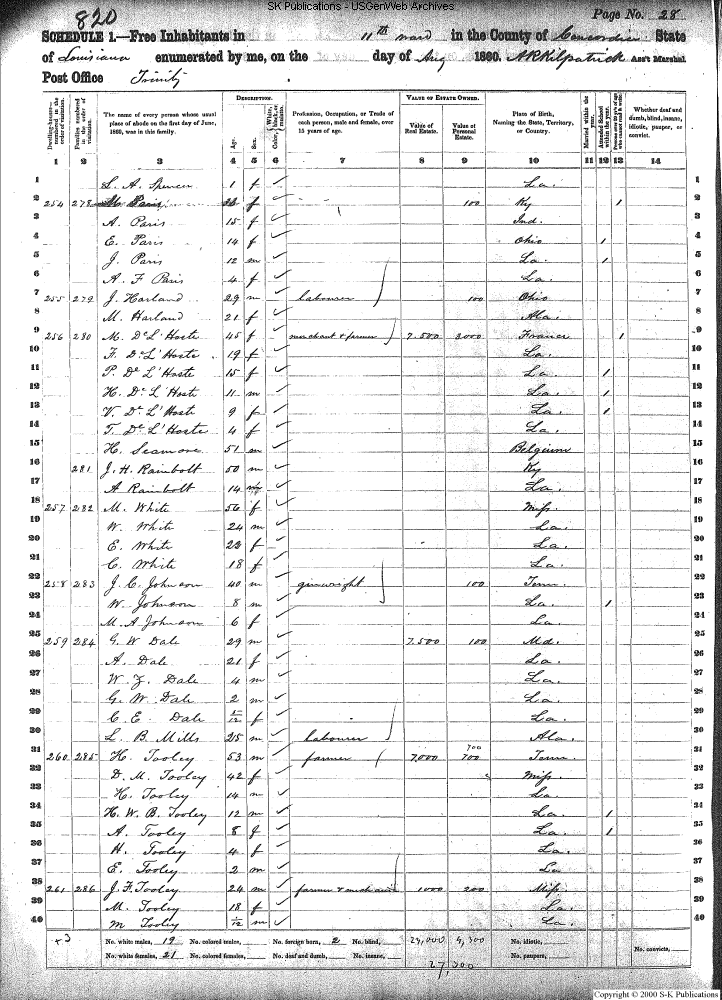 SK Publications - USGenWeb Archives
820
Page No. 28
SCHEDULE 1.—Free Inhabitants in 11th ward in the County of Concordia State
of Louisiana enumerated by me, on the day of Aug 1860. A R Kilpatrick Ass't Marshal.
Post Office Trinity
Dwelling-houses—numbered in the order of visitation.
Families numbered in the order of visitation.
The name of every person whose usual place of abode on the first day of June, 1860, was in this family.
DESCRIPTION.
Age.
Sex.
Color, White, black, or mulatto.
Profession, Occupation, or Trade of each person, male and female, over 15 years of age.
VALUE OF ESTATE OWNED.
Value of Real Estate.
Value of Personal Estate.
Place of Birth, Naming the State, Territory, or Country.
Married within the year.
Attended School within the year.
Whether deaf and dumb, blind, insane, idiotic, pauper, or convict.
1 2 3 4 5 6 7 8 9 10 11 12 13 14
1 L. A. Spencer 1 f ✓ La. 1
2 254 278 M. Paris f ✓ 100 Ky 1 2
3 A. Paris 15 f ✓ Ind. 3
4 E. Paris 14 f ✓ Ohio 1 4
5 J. Paris 12 m ✓ La. 1 5
6 A. F Paris 4 f ✓ La. 6
7 255 279 J. Harland 29 m ✓ labourer 100 Ohio 7
8 M. Harland 21 f ✓ Ala. 8
9 256 280 M. De L'Hoste 45 f ✓ merchant & farmer 7.500 3,000 France 1 9
10 F. De L'Hoste 19 f ✓ La. 10
11 P. De L'Hoste 15 f ✓ La. 1 11
12 H. De L'Hoste 11 m ✓ La. 1 12
13 V. De L'Hoste 9 f ✓ La. 1 13
14 T. De L'Hoste 4 f ✓ La. 14
15 H. Seamore 51 m ✓ Belgium 15
16 281 J. H. Rainbolt 50 m ✓ Ky 16
17 A Rainbolt 14 ✓ La. 17
18 257 282 M. White 56 f ✓ Miss. 18
19 W. White 24 m ✓ La. 19
20 E. White 22 f ✓ La. 20
21 C. White 18 f ✓ La. 21
22 258 283 J. C. Johnson 40 m ✓ ginwright 100 Tenn. 22
23 W. Johnson 8 m ✓ La. 1 23
24 M. A Johnson 6 f ✓ La 24
25 259 284 G. W Dale 29 m ✓ 7.500 100 Md. 25
26 A. Dale 21 f ✓ La. 26
27 W. Z. Dale 4 m ✓ La. 27
28 G. W Dale 2 m ✓ La. 28
29 C. E. Dale f ✓ La. 29
30 L. B Mills 25 m ✓ labourer Ala. 30
31 260 285 H. Tooley 53 m ✓ farmer 7,000 700 700 Tenn. 31
32 D. M. Tooley 42 f ✓ Miss. 32
33 H. Tooley 14 m ✓ La. 33
34 H. W. B. Tooley 12 m ✓ La. 1 34
35 A. Tooley 8 f ✓ La. 1 35
36 H. Tooley 4 f ✓ La. 36
37 E. Tooley 2 m ✓ La 37
38 261 286 J. F. Tooley 24 m ✓ farmer & mechanic 1000 200 Miss. 38
39 M. Tooley 18 f ✓ La. 39
40 M Tooley m ✓ La. 40
No. white males, 19 No. colored males, No. foreign born, 2 No. blind, 23,000 4,300 No. idiotic,
No. white females, 21 No. colored females, No. deaf and dumb, No. insane, No. paupers, No. convicts,
27,300
Copyright © 2000 S-K Publications